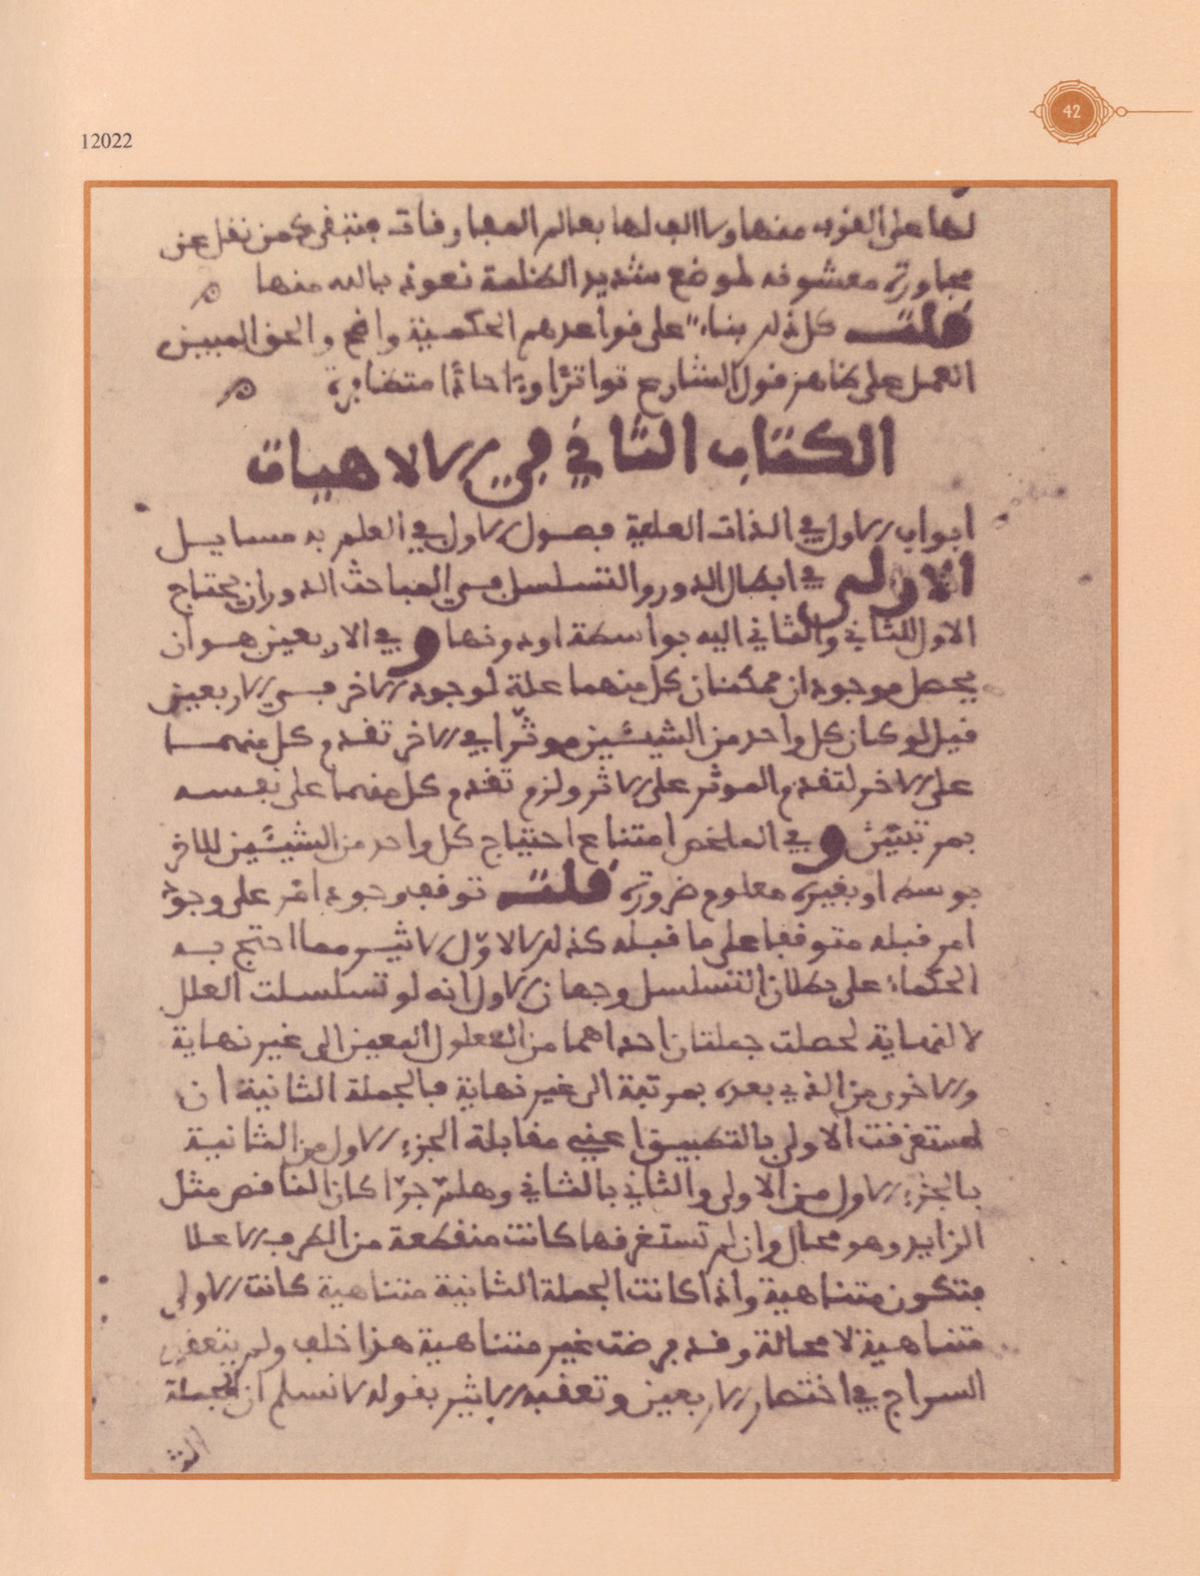 42
12022
لها على العود منها ولا الف لها بعالم المفارقات فتبقى كمن نقل عن
مجاورة معشوقه لموضع شديد الظلمة نعوذ بالله منها
قلت كل ذلك بناء على قواعدهم الحكمية واضح والحق المبين
العمل على ظاهر قول الشارع تواترًا وءاحادًا متضافرة
الكتاب الثاني في الالاهيات
ابواب الاول في الذات العلية فصول الاول في العلم به مسايل
الاولى في ابطال الدور والتسلسل في المباحث الدور ان يحتاج
الاول للثاني والثاني اليه بواسطة او دونها وفي الاربعين هو ان
يحصل موجودان ممكنان كل منهما علة لوجود الاخر في الاربعين
قيل لو كان كل واحد من الشيئين موثرا في الاخر تقدم كل منهما
على الاخر لتقدم الموثر على الاثر ولزم تقدم كل منهما على نفسه
بمرتبتين وفي الملخص امتناع احتياج كل واحد من الشيئين للاخر
بوسط او بغيره معلوم ضرورة قلت توقف وجود امر على وجود
امر قبله متوقفا على ما قبله كذلك لا لاوّل الاثير مما احتج به
الحكماء على بطلان التسلسل وجهان الاول انه لو تسلسلت العلل
لا لنهاية لحصلت جملتان احداهما من المعلول المعين الى غير نهاية
والاخرى من الذي بعده بمرتبة الى غير نهاية فالجملة الثانية ان
استغرقت الاولى بالتطبيق اعني مقابلة الجزء الاول من الثانية
بالجزء الاول من الاولى والثاني بالثاني وهلمّ جرّا كان الناقص مثل
الزايد وهو محال وان لم تستغرقها كانت منقطعة من الطرف الاعلا
فتكون متناهية واذا كانت الجملة الثانية متناهية كانت الاولى
متناهية لا محالة وقد فرضت غير متناهية هذا خلف ولم يتعقبه
السراج في اختصار الاربعين وتعقبه الاثير بقوله لا نسلم ان الجملة